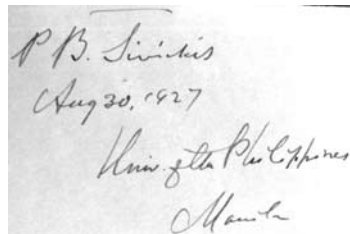 P B. Sivickis
Aug 30, 1927
Univ. of the Philippines
Manila